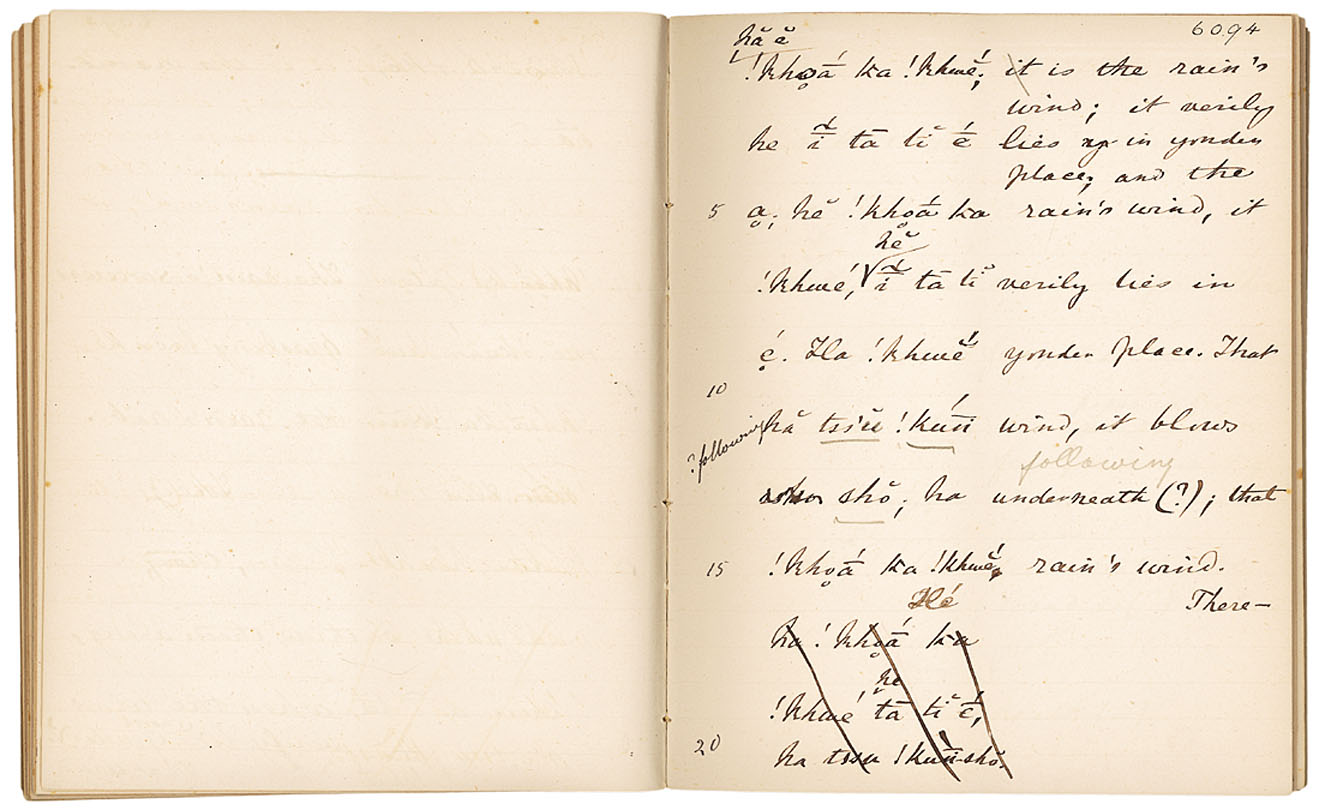 6094
hă ĕ
!kho̥á ka !khwé; it is the rain's
wind; it verily
he ī̃ tā tĭ é lies in yonder
place; and the
5 a̤; hĕ !khoá ka rain's wind, it
hĕ
!khwé, ī̃ tā tĭ verily lies in
é̤. Ha !khwĕ́ yonder place. That
10
? following hă tsʼĕĭ !kuń̄i wind, it blows
following
shŏ; ha underneath (?); that
15 !kho̥á ka !khwĕ́; rain's wind.
Hé There—
ha !kho̥á ka
he
!khwé tā tĭ é,
20 ha tssu !kuń̄i shŏ.